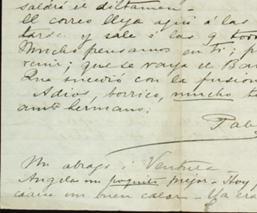 saldrá el dictamen.
El correo llega aquí á las
tarde y sale á las 9
Mucho pensamos en ti; p
venir; que se vaya el Bar
Que sucedió con la fusión
Adios, borrico, mucho te
hermano;
Pab
Un abrazo á Ventura
Angela un poquito mejor. Hoy
un buen calor. Ya era